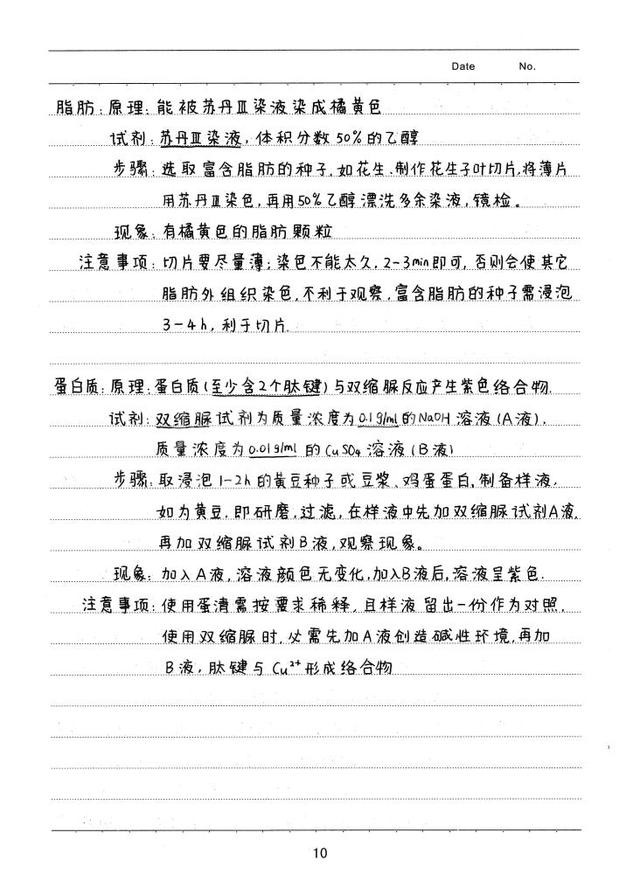 Date No.
脂肪:原理:能被苏丹Ⅲ染液染成橘黄色
试剂:苏丹Ⅲ染液,体积分数50%的乙醇
步骤:选取富含脂肪的种子,如花生、制作花生子叶切片,将薄片
用苏丹Ⅲ染色,再用50%乙醇漂洗多余染液,镜检。
现象:有橘黄色的脂肪颗粒
注意事项:切片要尽量薄;染色不能太久,2-3min即可,否则会使其它
脂肪外组织染色,不利于观察,富含脂肪的种子需浸泡
3-4h,利于切片.
蛋白质:原理:蛋白质(至少含2个肽键)与双缩脲反应产生紫色络合物.
试剂:双缩脲试剂为质量浓度为0.1g/ml的NaOH溶液(A液).
质量浓度为0.01g/ml的CuSO4溶液(B液)
步骤:取浸泡1-2h的黄豆种子或豆浆、鸡蛋蛋白,制备样液,
如为黄豆,即研磨,过滤,在样液中先加双缩脲试剂A液,
再加双缩脲试剂B液,观察现象。
现象:加入A液,溶液颜色无变化,加入B液后,溶液呈紫色.
注意事项:使用蛋清需按要求稀释,且样液留出一份作为对照,
使用双缩脲时,必需先加A液创造碱性环境,再加
B液,肽键与Cu²⁺形成络合物
10